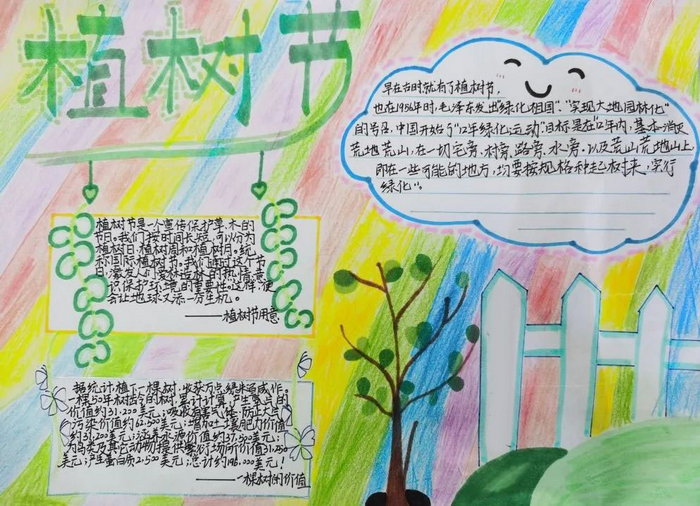 植树节
早在古时就有了植树节，
也在1956年时，毛泽东发出"绿化祖国"、"实现大地园林化"
的号召，中国开始了"12年绿化运动"目标是在"12年内，基本消灭
荒地荒山，在一切宅旁、村旁、路旁、水旁、以及荒山荒地山上，
即在一些可能的地方，均要按规格种起树来，实行
绿化"。
植树节是一个宣传保护草、木的
节日。我们按时间长短，可以分为
植树日、植树周和植树月。统
称国际植树节。我们通过这个节
日，激发人们爱林造林的热情，意
识保护环境的重要性。这样，便
会让地球又添一分生机。
——植树节用意
据统计，植下一棵树，收获万点绿来汤成作。
一棵50年树龄的树，累计计算，产生氧气的
价值约31.200美元；吸收有害气体，防止大气
污染价值约62.500美元；增加土壤肥力价值
约31.200美元；涵养水源价值约37.500美元；
为鸟类及其它动物提供繁衍场所价值31.250
美元；产生蛋白质2.500美元；总计约196.000美元！
——一棵树的价值